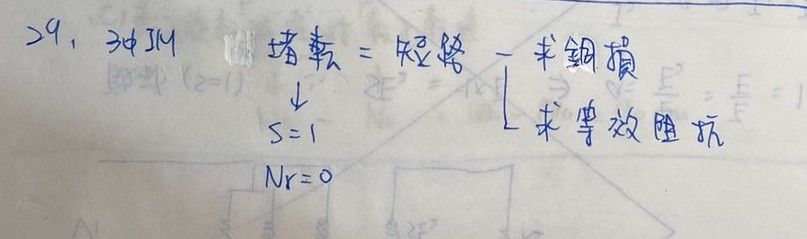 29. 3ϕIM 堵転 = 短路 - 求銅損
↓ 求等效阻抗
S=1
Nr=0